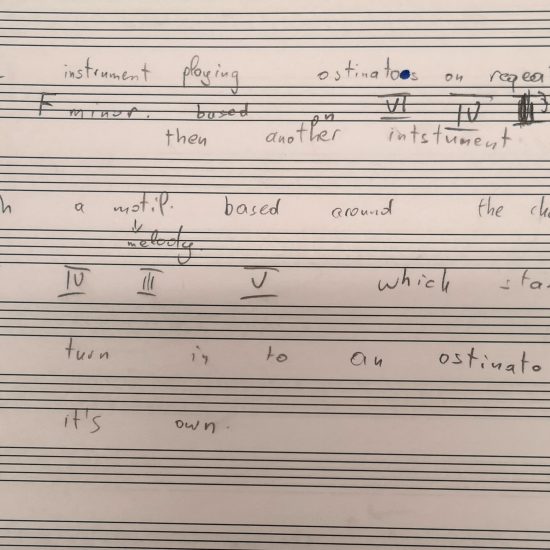 instrument ploying ostinatoes on repeat
F minor. based on VI IV
then another intstument
a motif. based around the
melody.
IV III V which
turn in to an ostinato
it's own.